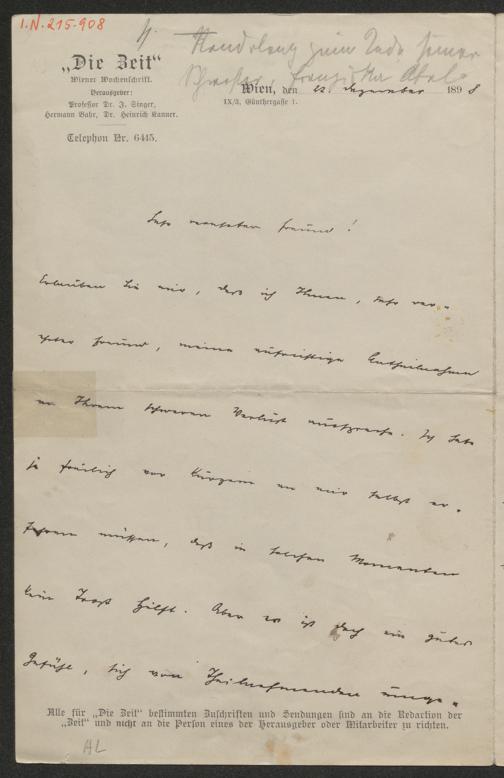 I.N. 215.908
Kondolenz zum Tode seiner
Schwester, Franziska
„Die Zeit“
Wiener Wochenschrift.
Herausgeber:
Professor Dr. J. Singer,
Hermann Bahr, Dr. Heinrich Kanner.
Telephon Nr. 6415.
Wien, den 22 Dezember 1898
IX/3, Günthergasse 1.
Sehr verehrter Freund!
Erlauben Sie mir, daß ich Ihnen, sehr ver-
ehrter Freund, meine aufrichtige Antheilnahme
an Ihrem schweren Verlust ausspreche. Ich habe
ja freilich vor Kurzem an mir selbst er-
fahren müssen, daß in solchen Momenten
kein Trost hilft. Aber es ist doch ein gutes
Gefühl, sich von Theilnehmenden umge-
Alle für „Die Zeit“ bestimmten Zuschriften und Sendungen sind an die Redaction der
„Zeit“ und nicht an die Person eines der Herausgeber oder Mitarbeiter zu richten.
AL